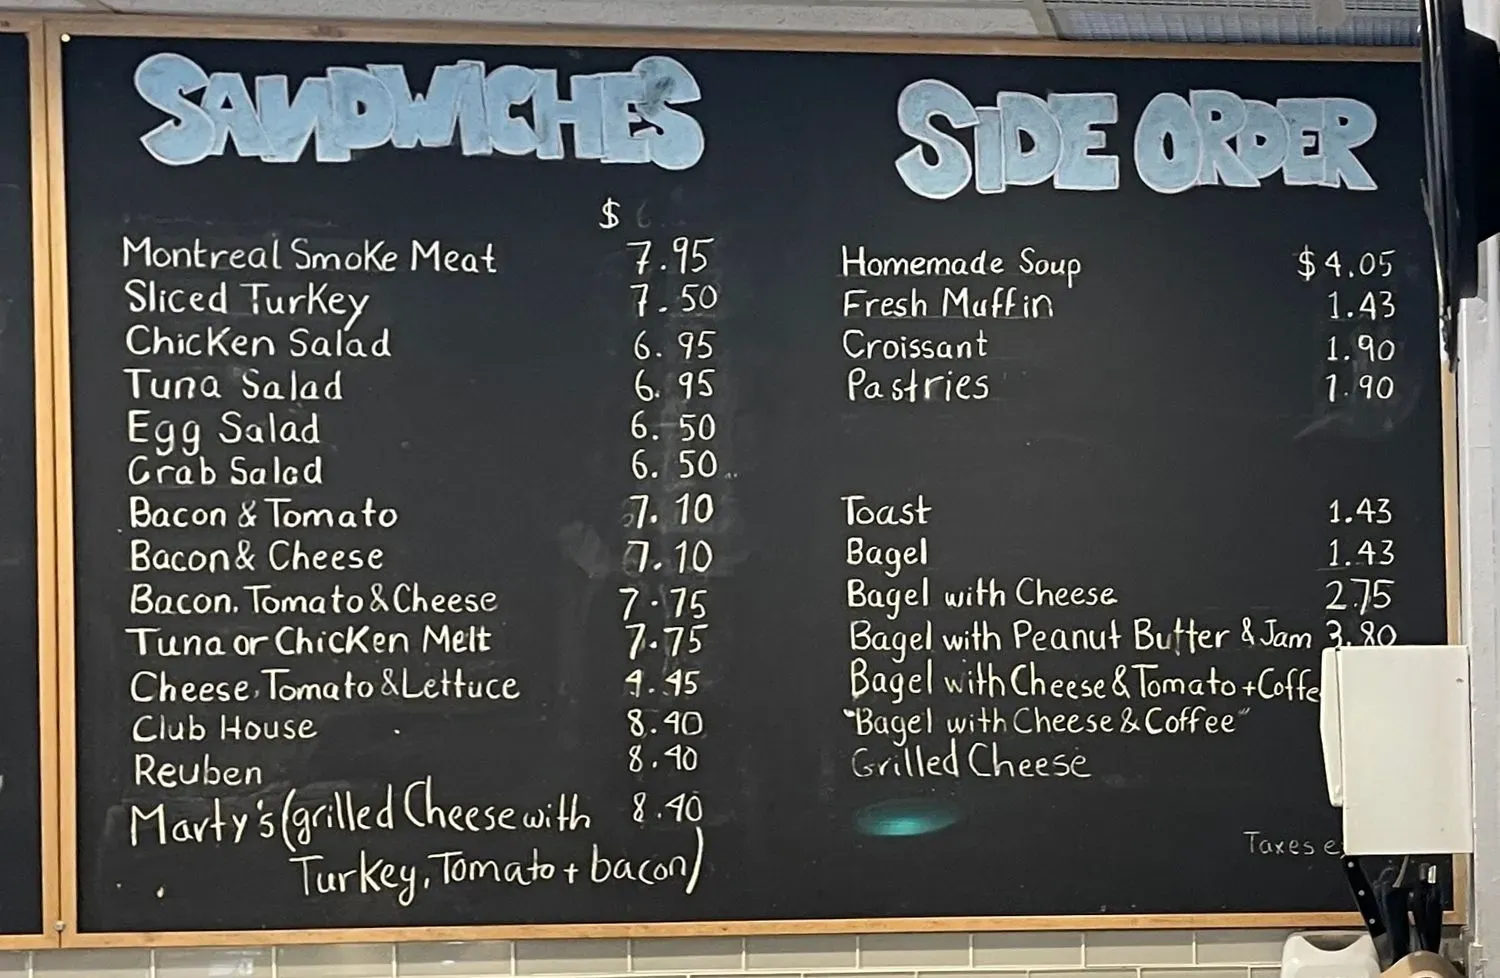 SANDWICHES
$
Montreal Smoke Meat 7.95
Sliced Turkey 7.50
Chicken Salad 6.95
Tuna Salad 6.95
Egg Salad 6.50
Crab Salad 6.50
Bacon & Tomato 7.10
Bacon & Cheese 7.10
Bacon. Tomato & Cheese 7.75
Tuna or Chicken Melt 7.75
Cheese, Tomato & Lettuce 4.45
Club House 8.40
Reuben 8.40
Marty's (grilled Cheese with 8.40
Turkey, Tomato + bacon)
SIDE ORDER
Homemade Soup $4.05
Fresh Muffin 1.43
Croissant 1.90
Pastries 1.90
Toast 1.43
Bagel 1.43
Bagel with Cheese 2.75
Bagel with Peanut Butter & Jam 3.80
Bagel with Cheese & Tomato + Coffe
"Bagel with Cheese & Coffee"
Grilled Cheese
Taxes